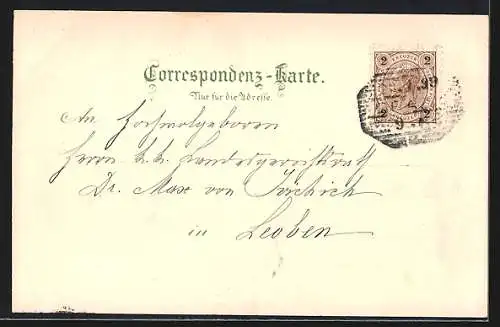 Correspondenz-Karte.
Nur für die Adresse.
2 2
2 2
99
9
An Hochwolgeboren
Herrn k.k. Landesgerichtsrath
Dr. Max von
in Leoben